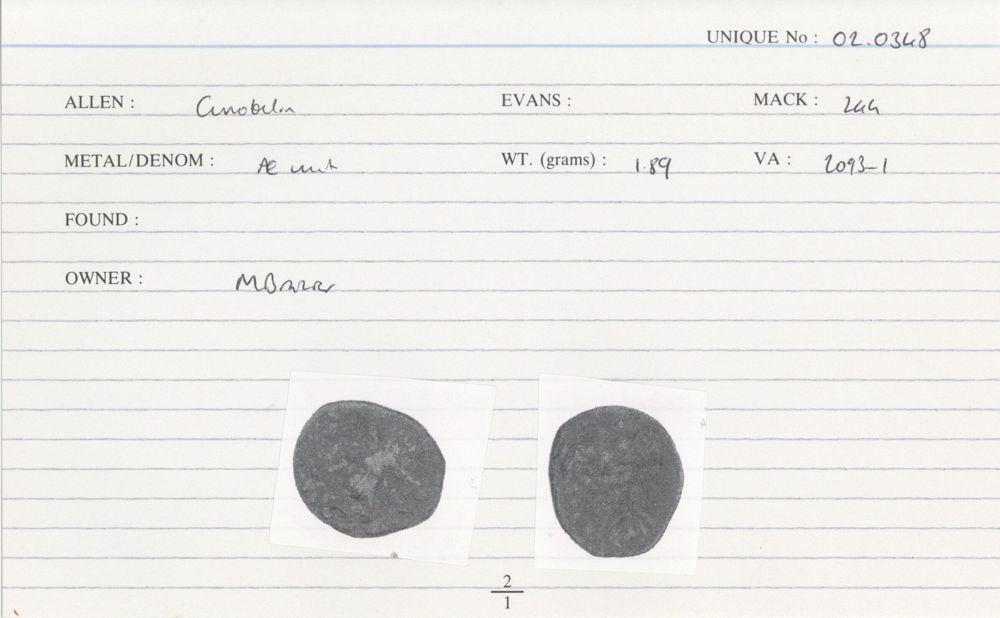 UNIQUE No : 02.0348
ALLEN : Cunobelin EVANS : MACK : 244
METAL/DENOM : Æ unit WT. (grams) : 1.89 VA : 2093-1
FOUND :
OWNER :
2
1